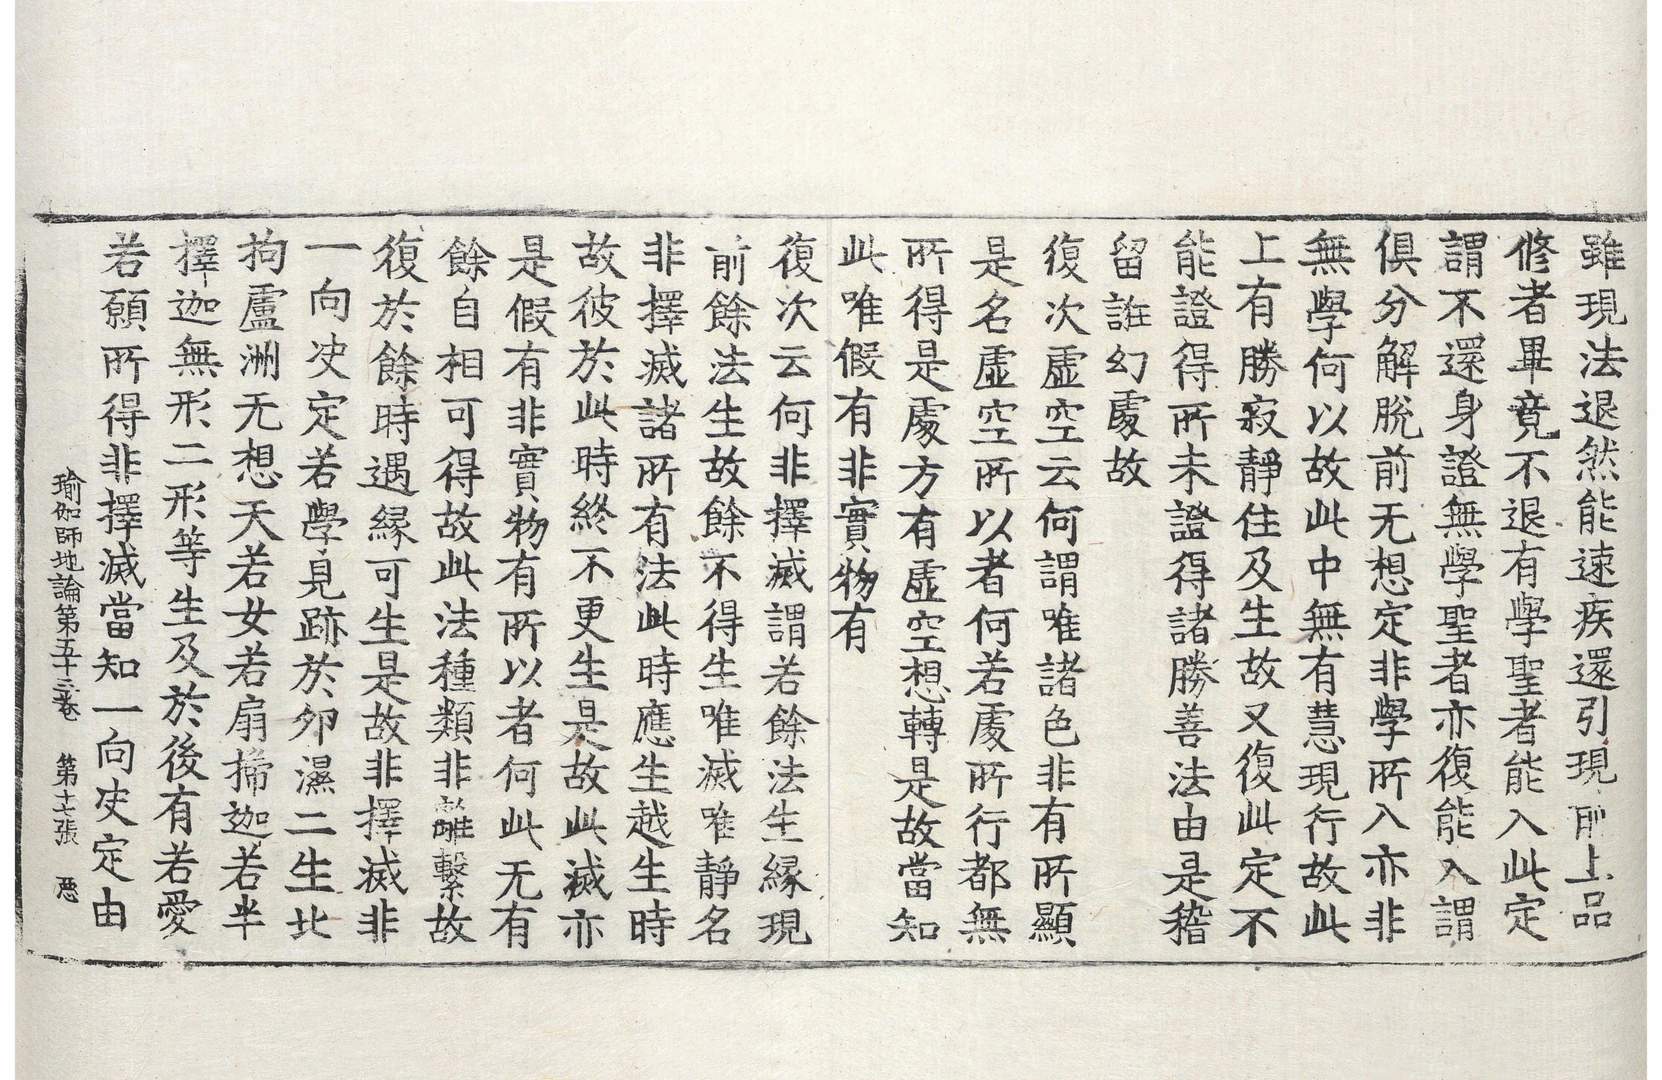 雖現法退然能速疾還引現前上品
修者畢竟不退有學聖者能入此定
謂不還身證無學聖者亦復能入謂
俱分解脫前无想定非學所入亦非
無學何以故此中無有慧現行故此
上有勝寂靜住及生故又復此定不
能證得所未證得諸勝善法由是稽
留誑幻處故
復次虛空云何謂唯諸色非有所顯
是名虛空所以者何若處所行都無
所得是處方有虛空想轉是故當知
此唯假有非實物有
復次云何非擇滅謂若餘法生緣現
前餘法生故餘不得生唯滅唯靜名
非擇滅諸所有法此時應生越生時
故彼於此時終不更生是故此滅亦
是假有非實物有所以者何此无有
餘自相可得故此法種類非離繫故
復於餘時遇緣可生是故非擇滅非
一向决定若學見跡於卵濕二生北
拘盧洲无想天若女若扇搋迦若半
擇迦無形二形等生及於後有若愛
若願所得非擇滅當知一向决定由
瑜伽師地論第五十三卷 第十七張 惡